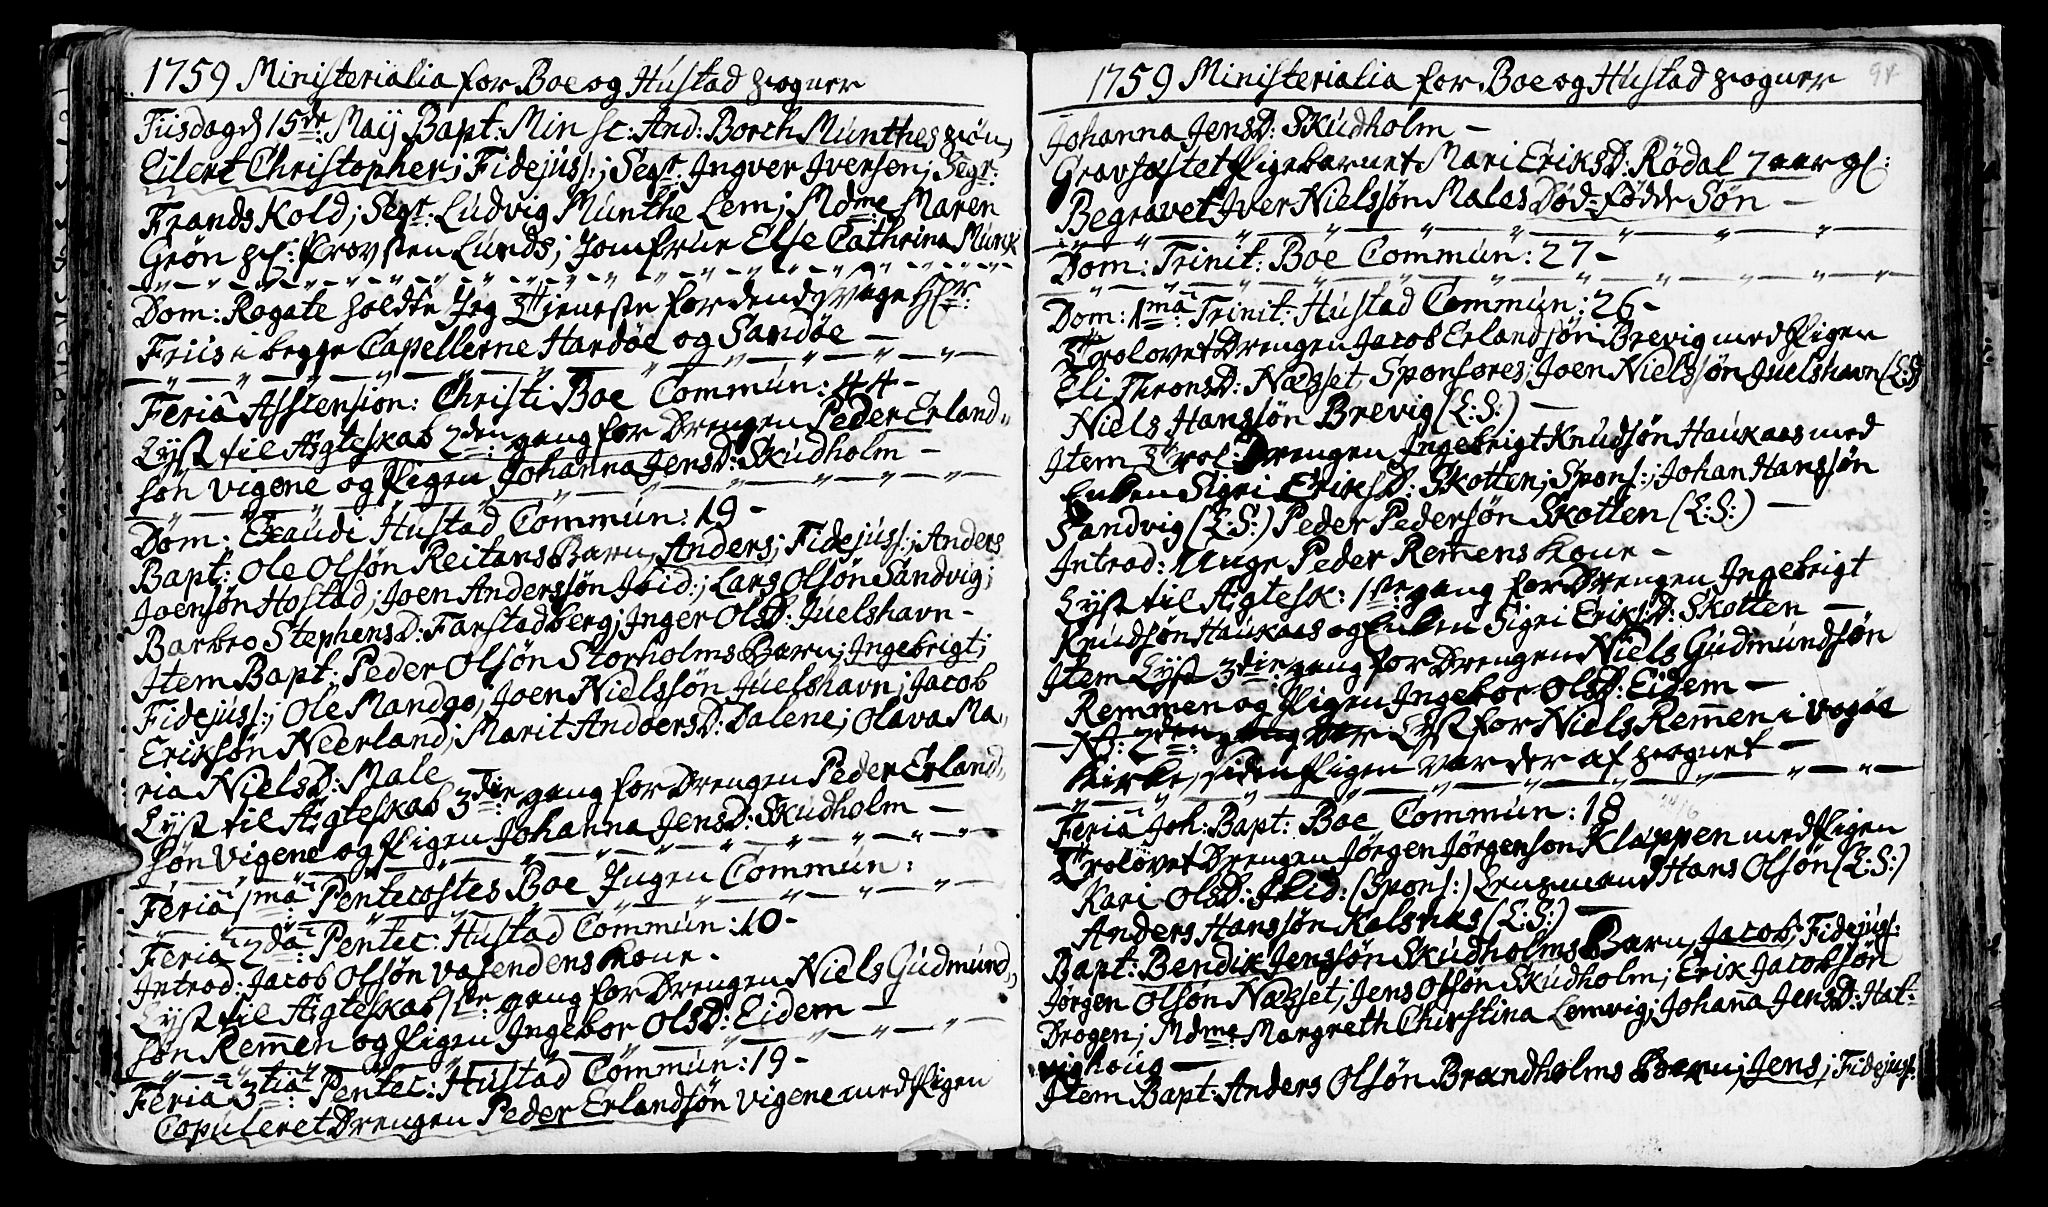 1759 Ministerialia for Boe og Hustad Sogner
Tiisdag d 15de: Maij Bapt: Min Sc: And: Borch Munthes Søn,
Eilert Christopher; Fidejuss:; Segr: Jngver Jversen; Segr:
Frands Kold; Segr: Ludvig Munthe Lem; Mdme Maren
Grøn Sl: Provsten Lunds; Jomfrue Else Cathrina Munk
Dom: Rogate holdte Jeg Tieneste for dend Syge Hr:
Friis i begge Capellerne Hardøe og Sandøe —
Feria Asstension: Christi Boe Commun: 44 -
Lyst til Ægteskab 2den: gang for Drengen Peder Erland„
søn Vigene og Pigen Johanna JensD: Skudholm —
Dom: Exaudi Hustad Commun: 19 -
Bapt: Ole Olsøn Reitans Barn, Anders; Fidejuss:; Anders
Joensøn Hostad; Joen Anderssøn Jbid:; Lars Olsøn Sandvig;
Barbro StephensD: Farstadberg; Jnger OlsD: Juelshavn -
Jtem Bapt: Peder Olsøn Storholms Barn; Jngebrigt;
Fidejuss:; Ole Mandgo; Joen Nielssøn Juelshavn; Jacob
Eriksøn Neerland; Marit AndoersD: Dalene; Olava Ma„
ria NielsD: Male
Lyst til Ægteskab 3die gang for Drengen Peder Erland„
søn Vigene og Pigen Johanna JensD: Skudholm —
Feria 1ma: Pentecostes Boe Jngen Commun:
Feria 2da: Pentec: Hustad Commun: 10 -
Jntrod: Jacob Olsøn Vasendens Kone -
Lyst til Ægteskab 1ste gang for Drengen Niels Gudmund„
søn Remen og Pigen Jngebor OlsD: Eidem —
Feria 3tia: Pentec: Hustad Commun: 19 -
Copuleret Drengen Peder Erlandsøn Vigene med Pigen
1759 Ministerialia for Boe og Hustad Sogner 94
Johanna JensD: Skudholm —
Gravfæstet Pigebarnet Mari EriksD: Rødal 7 aar gl:
Begravet Jver Nielssøn Males Død-fødde Søn —
Dom: Trinit: Boe Commun: 27 -
Dom: 1ma Trinit: Hustad Commun: 26 -
Trolovet Drengen Jacob Erlandsøn Brevig med Pigen
Eli ThronsD: Næsset, Sponsores; Joen Nielssøn Juelshavn (L:S:)
Niels Hanssøn Brevig (L:S:) —
Jtem Trol: Drengen Jngebrigt Knudsøn Haukaas med
Enken Sigri EriksD: Skotten; Spons:; Johan Hanssøn
Sandvig (L:S:) Peder Pedersøn Skotten (L:S:) —
Jntrod: Unge Peder Remens Kone -
Lyst til Ægtesk: 1ste gang for Drengen Jngebrigt
Knudsøn Haukaas og Enken Sigri EriksD: Skotten —
Jtem Lyst 3die gang for Drengen Niels Gudmundsøn
Remmen og Pigen Jngebor OlsD: Eidem —
NB: 2den: gang Lyst for Niels Remen i Vogøe
Kirke, siden Pigen var der af Sognet —
Feria Joh: Bapt: Boe Commun: 18
Trolovet Drengen Jørgen Jørgenson Klappen med Pigen
Kari OlsD: Jbid: (Spons:) Lensmand Hans Olsøn (L:S:)
Anders Hanssøn Kalsnæs (L:S:) —
Bapt: Bendik Jenssøn Skudholms Barn, Jacob; Fidejuss:
Jørgen Olsøn Næsset; Jens Olsøn Skudholm; Erik Jacobsøn
Drogen; Mdme Margreth Chirstina Lemvig; Johanna JensD: Hat:
vighoug —
Jtem Bapt: Anders Olsøn Brandholms Barn; Jens; Fidejuss: